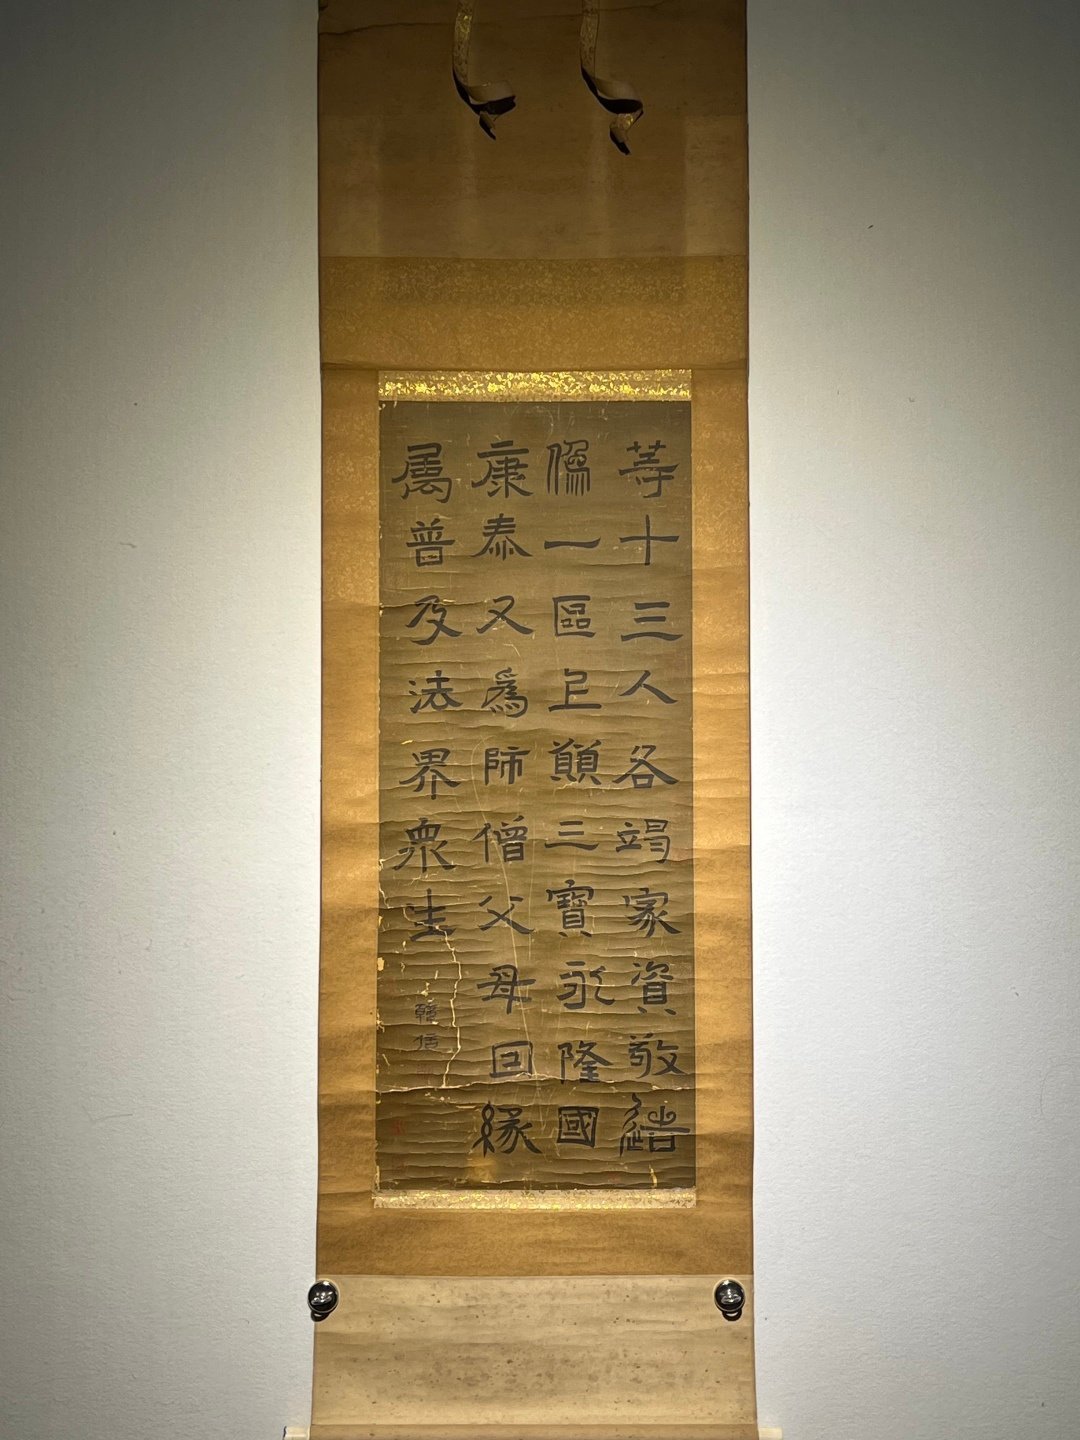 等十三人各竭家資敬結
僞一區上願三寶永隆國
康泰又爲師僧父母回緣
属普及法界衆生
韓信